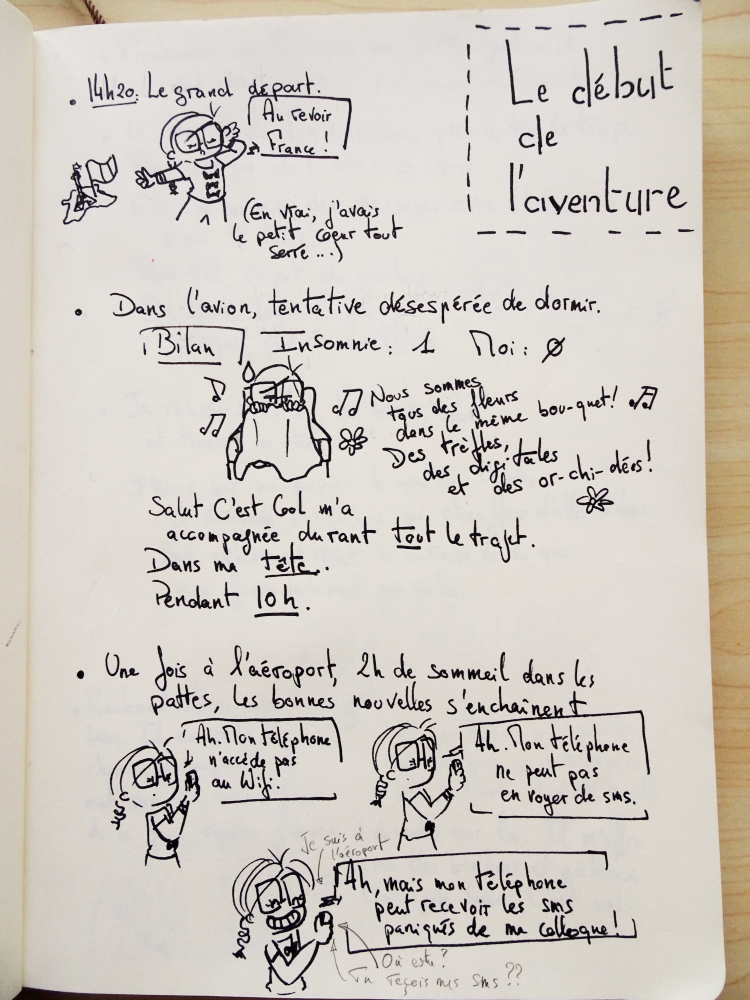 Le début
de
l'aventure
• 14h20: Le grand départ.
Au revoir
France !
(En vrai, j'avais
le petit coeur tout
serré...)
• Dans l'avion, tentative désespérée de dormir.
Bilan Insomnie : 1 Moi : Ø
Nous sommes
tous des fleurs
dans le même bou-quet!
Des trèfles,
des digitales
et des or-chi-dées!
Salut C'est Cool m'a
accompagnée durant tout le trajet.
Dans ma tête.
Pendant 10h.
• Une fois à l'aéroport, 2h de sommeil dans les
pattes, les bonnes nouvelles s'enchaînent
Ah. Mon téléphone
n'accède pas
au Wifi.
Ah. Mon téléphone
ne peut pas
envoyer de sms.
Je suis à
l'aéroport
Ah, mais mon téléphone
peut recevoir les sms
paniqués de ma colloque!
Où es tu?
Tu reçois mes sms ??